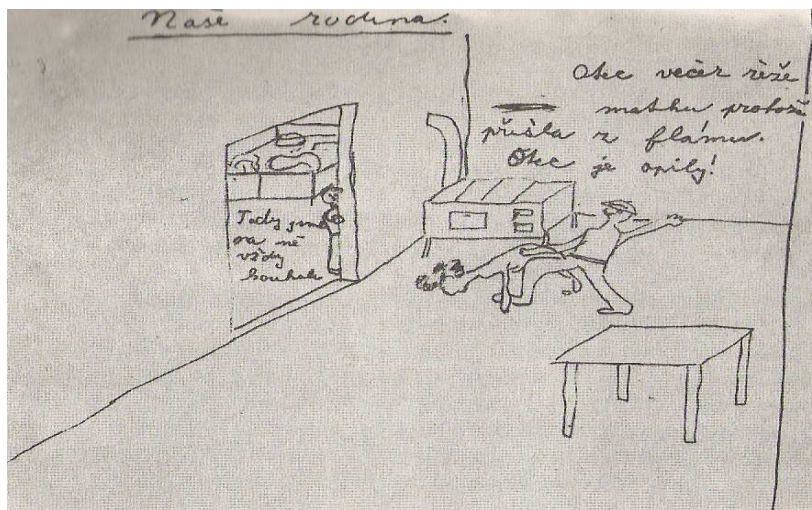 Naše rodina.
Otec večer řeže
matku protože
přišla z flámu.
Otec je opilý!
Tady jsme
na ně
vždy
koukali